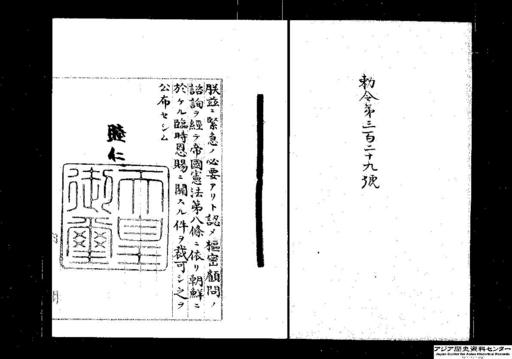 勅令第三百二十九號
朕茲ニ緊急ノ必要アリト認メ樞密顧問ノ
諮詢ヲ經テ帝國憲法第八條ニ依リ朝鮮ニ
於ケル臨時恩賜ニ關スル件ヲ裁可シ之ヲ
公布セシム
睦仁
天皇
御璽
アジア歴史資料センター
Japan Center for Asian Historical Records